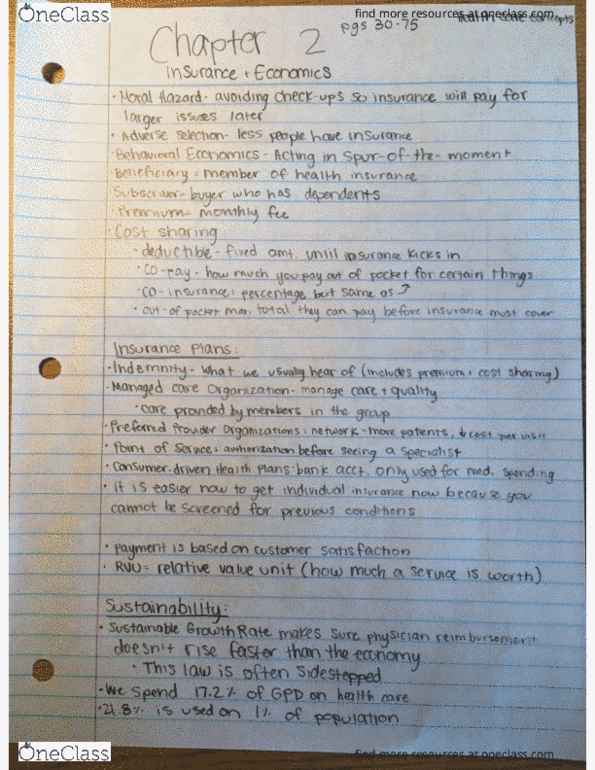 OneClass
find more resources at oneclass.com
pgs 30-75
Chapter 2
Insurance + Economics
• Moral Hazard - avoiding check-ups so insurance will pay for
larger issues later
• Adverse selection - less people have insurance
• Behavioral Economics - Acting in spur-of-the-moment
• Beneficiary = member of health insurance
• Subscriber - buyer who has dependents
• Premium = monthly fee
• Cost sharing
• deductible - fixed amt. until insurance kicks in
• co-pay - how much you pay out of pocket for certain things
• co-insurance: percentage but same as ↗
• out-of pocket max: total they can pay before insurance must cover
Insurance Plans:
• Indemnity - what we usually hear of (includes premium + cost sharing)
• Managed care Organization - manage care + quality
• care provided by members in the group
• Preferred Provider Organizations: network - more patents, ↓cost per visit
• Point of Service: authorization before seeing a specialist
• Consumer-driven Health Plans: bank acct. only used for med. spending
• it is easier now to get individual insurance now because you
cannot be screened for previous conditions
• payment is based on customer satisfaction
• RVU = relative value unit (how much a service is worth)
Sustainability:
• Sustainable Growth Rate makes sure physician reimbursement
doesn't rise faster than the economy
• This law is often sidestepped
• We spend 17.2% of GPD on health care
• 21.8% is used on 1% of population
OneClass
find more resources at oneclass.com